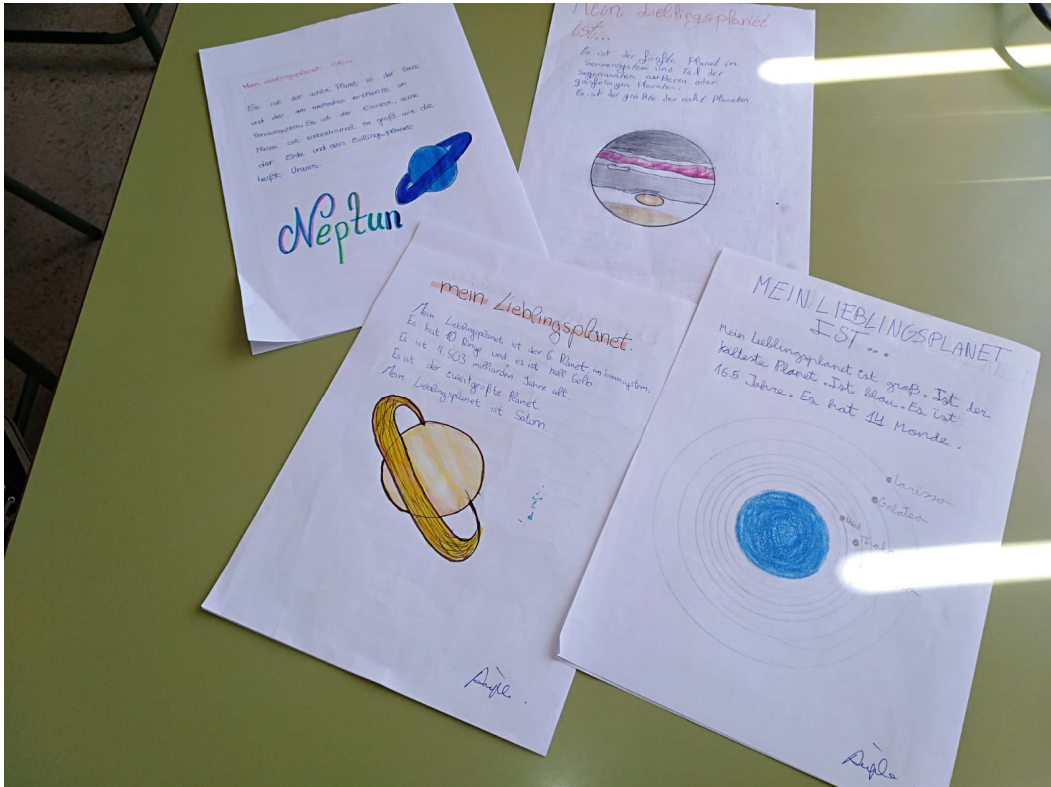 Mein Lieblingsplanet ist...
Es ist der achte Planet in der
und der am weitesten entfernte im
Sonnensystem. Es ist der seine
Masse ist siebzehnmal so groß wie die
der Erde und sein Zwillingsplanet
heißt Uranus.
Neptun
Mein Lieblingsplanet
ist...
Es ist der fünfte Planet im
Sonnensystem und Teil der
sogenannten äußeren oder
gasförmigen Planeten.
Es ist der größte der acht Planeten
mein Lieblingsplanet.
Mein Lieblingsplanet ist der 6 Planet im Sonnsystem.
Es hat 10 Ringe und es ist hell Gelb
Es ist 4.503 milliarden Jahre alt.
Es ist der zweitgrößte Planet
Mein Lieblingsplanet ist Saturn
MEIN LIEBLINGSPLANET
IST...
Mein Lieblingsplanet ist groß. Ist der
kälteste Planet. Ist blau. Es ist
165 Jahre. Es hat 14 Monde.
Larissa
Galatea